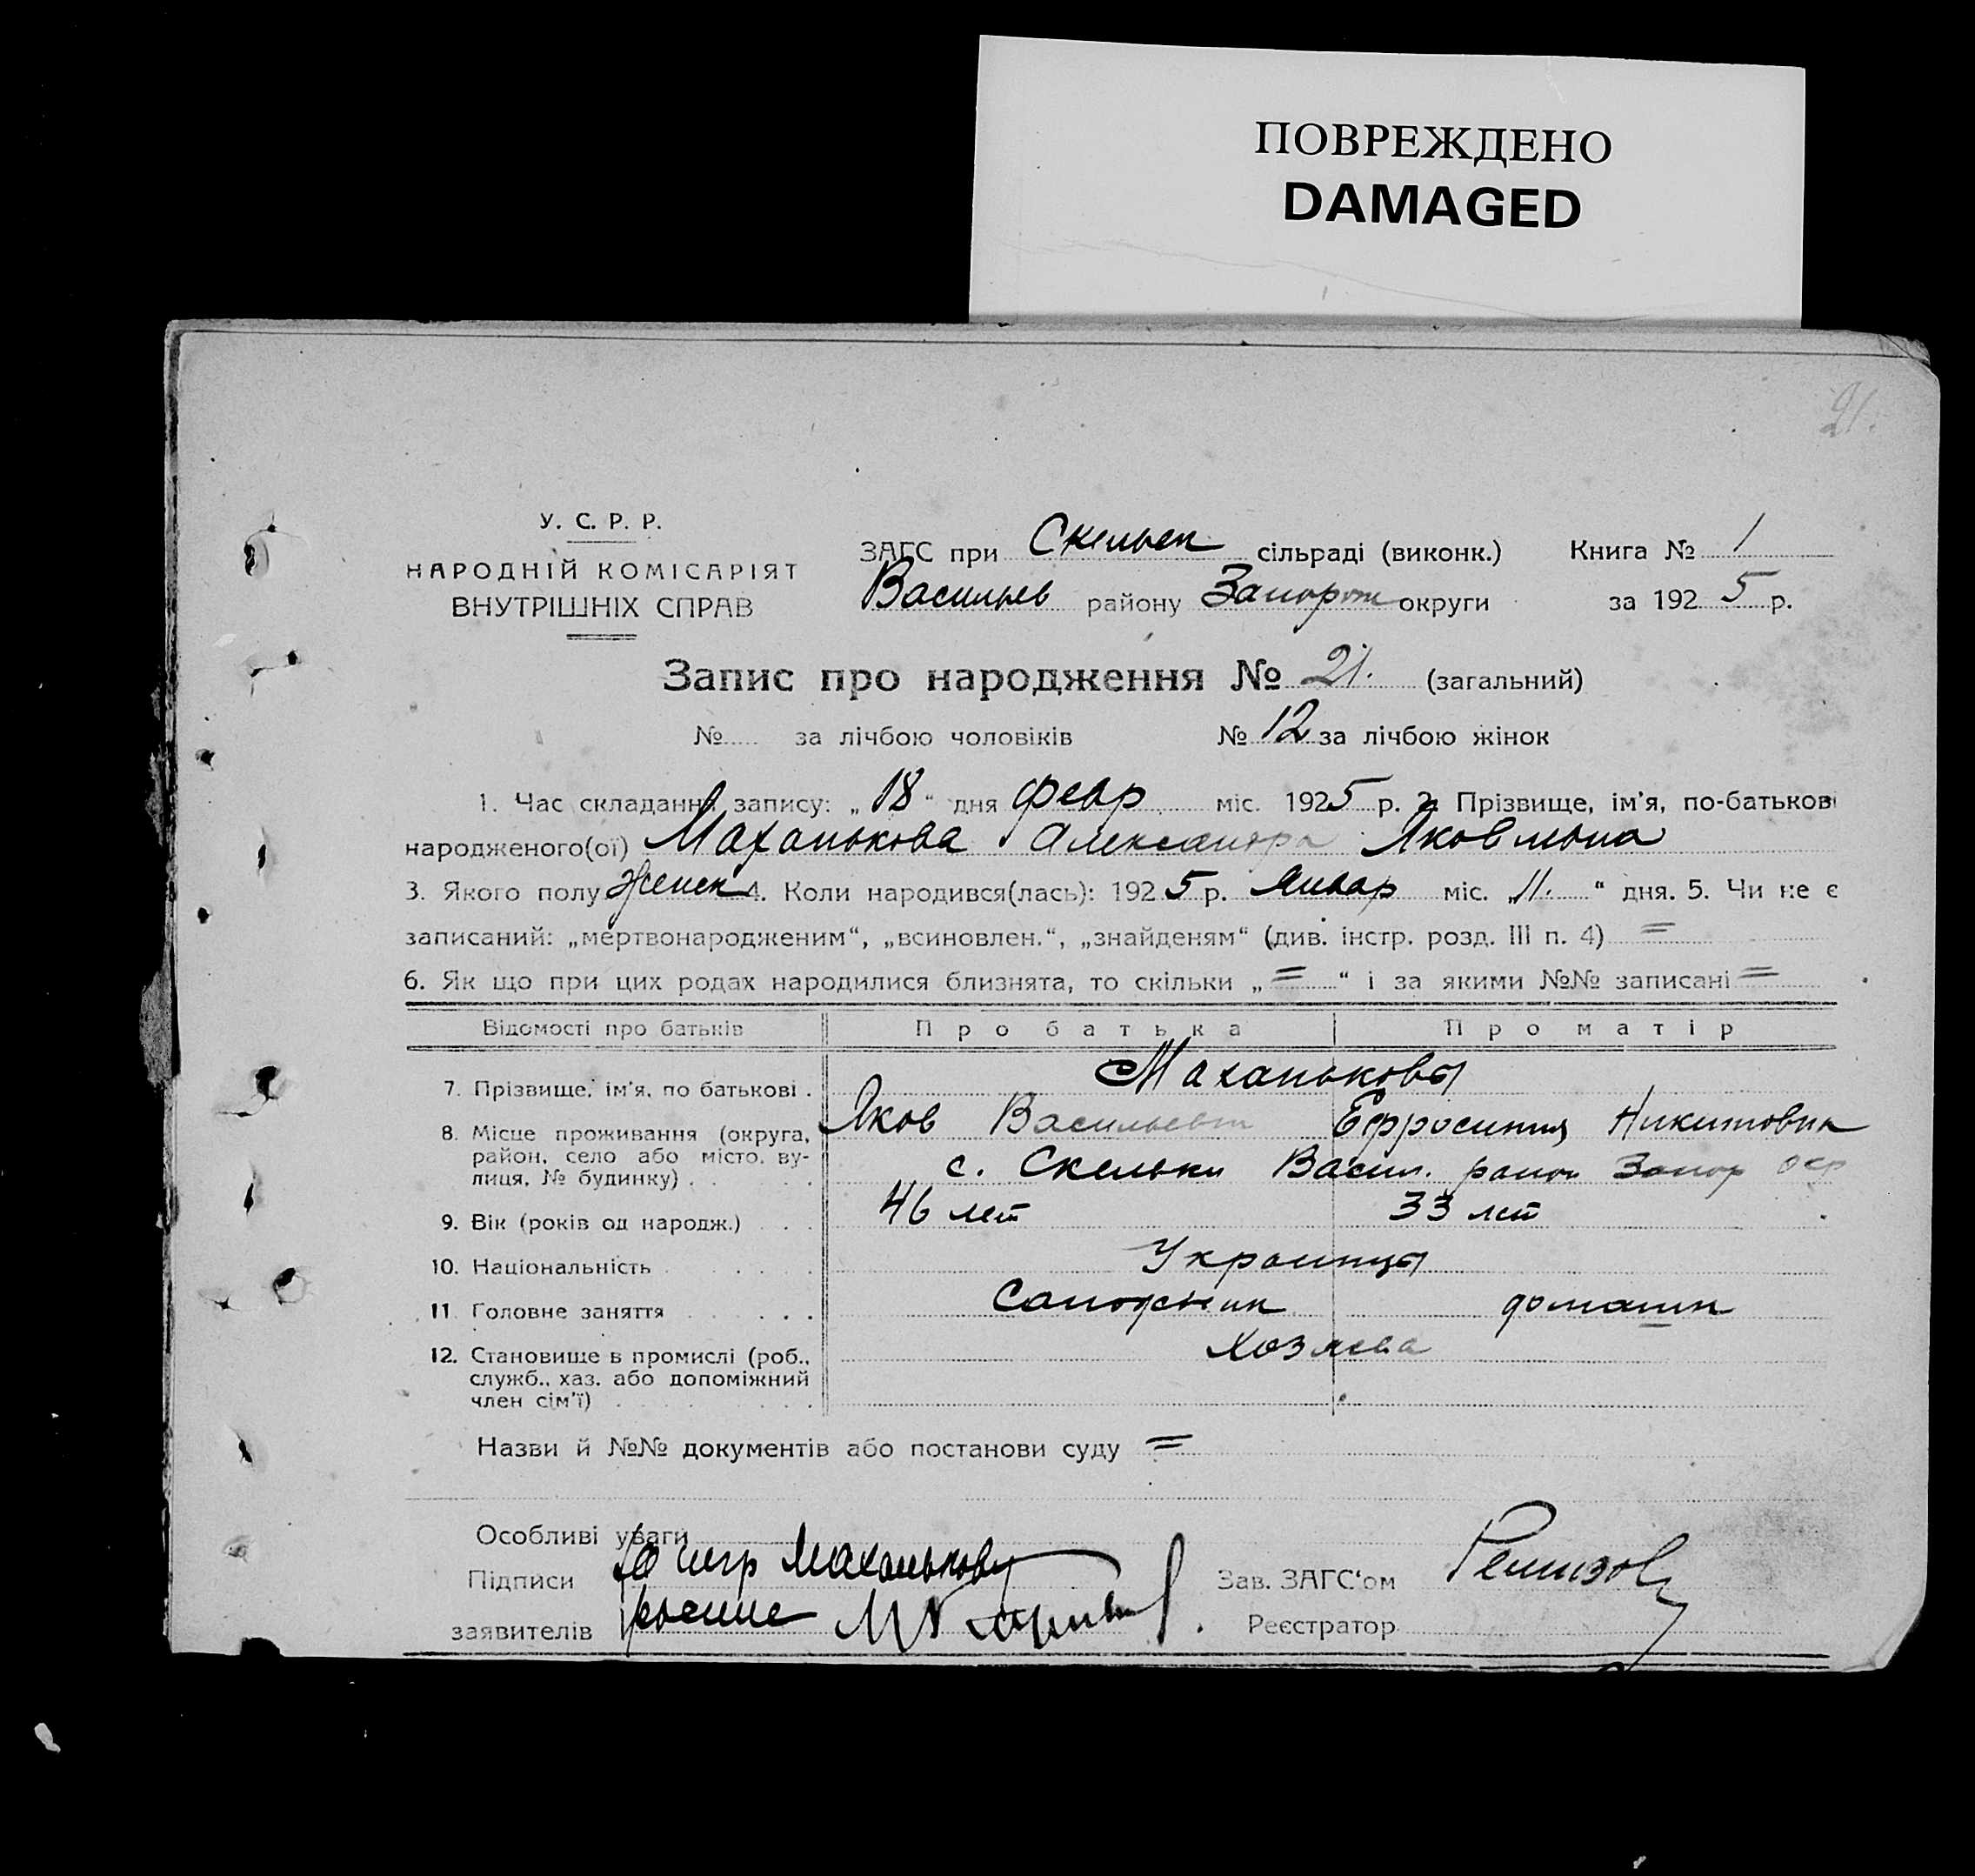 ПОВРЕЖДЕНО
DAMAGED
21.
У. С. Р. Р.
НАРОДНІЙ КОМІСАРІЯТ
ВНУТРІШНІХ СПРАВ
ЗАГС при Скельек сільраді (виконк.) Книга № 1
Васильев району Запорож округи за 1925 р.
Запис про народження № 21. (загальний)
№ за лічбою чоловіків № 12 за лічбою жінок
1. Час складання запису: „18“ дня февр міс. 1925 р. 2. Прізвище, ім'я, по-батькові
народженого(ої) Маханькова Александра Яковльна
3. Якого полу женск 4. Коли народився(лась): 1925 р. Январ міс. „11.“ дня. 5. Чи не є
записаний: „мертвонародженим“, „всиновлен.“, „знайденям“ (див. інстр. розд. III п. 4) =
6. Як що при цих родах народилися близнята, то скільки „=“ і за якими №№ записані =
Відомості про батьків Про батька Про матір
7. Прізвище, ім'я, по батькові . Маханьковы
Яков Васильевич Ефросиния Никитовна
8. Місце проживання (округа, район, село або місто, ву-
лиця, № будинку) . . с. Скельки Васил. район Запор окр
9. Вік (років од народж.) . . . 46 лет 33 лет
10. Національність Украинцы
11. Головне заняття Сапожник домашн
12. Становище в промислі (роб., хозяева
служб., хаз. або допоміжний
член сім'ї)
Назви й №№ документів або постанови суду =
Особливі уваги
Підписи Маханькову Зав. ЗАГС'ом Ремизов
заявителів Реєстратор